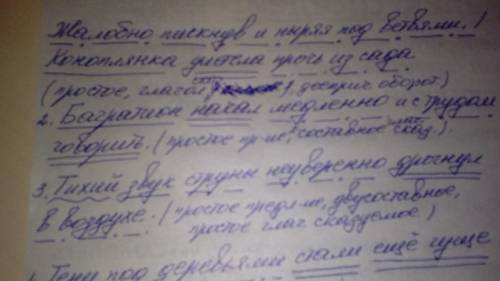 Жалобно пискнув и ныряя под ветвями. /
Коноплянка улетела прочь из сада
(простое, глагол, дееприч. оборот)
2. Багратион начал медленно и с трудом
говорить. (простое пр-ие, составное глаг. сказ.).
3. Тихий звук струны неуверенно дрогнул
в воздухе. (простое предл-ие, двусоставное,
простое глаг. сказуемое)
Тени под деревьями стали ещё гуще